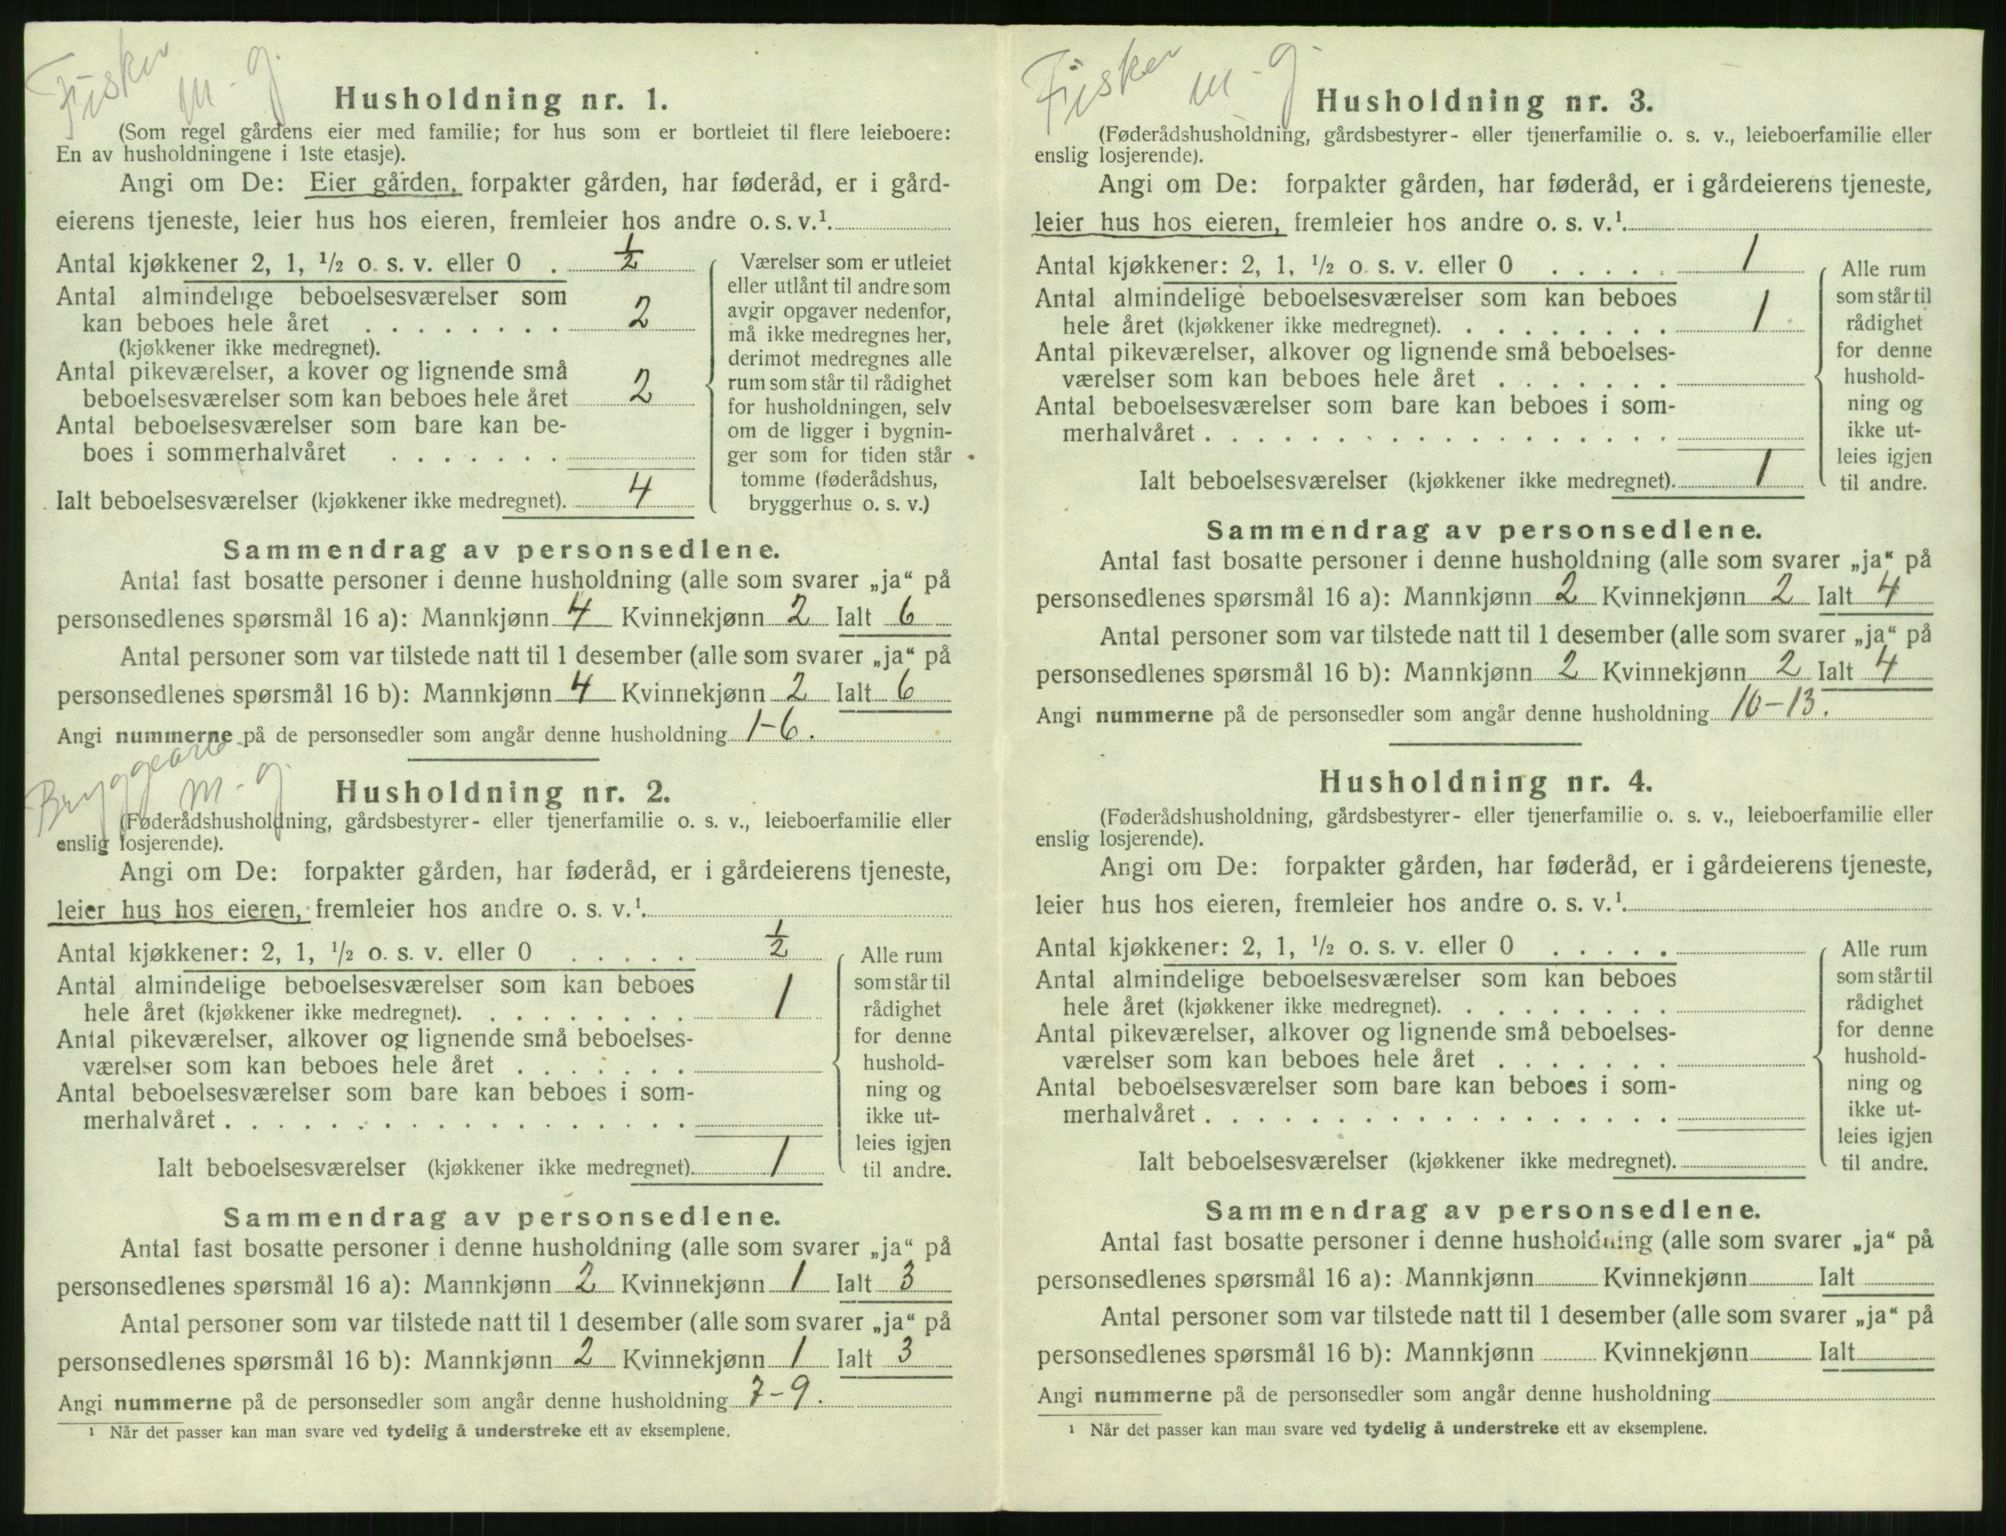 Fisker
m. g.
Husholdning nr. 1.
(Som regel gårdens eier med familie; for hus som er bortleiet til flere leieboere:
En av husholdningene i 1ste etasje).
Angi om De: Eier gården, forpakter gården, har føderåd, er i gård-
eierens tjeneste, leier hus hos eieren, fremleier hos andre o. s. v.¹
Antal kjøkkener 2, 1, ½ o. s. v. eller 0 . ½
Antal almindelige beboelsesværelser som
kan beboes hele året . . . . . . . . 2
(kjøkkener ikke medregnet).
Antal pikeværelser, a kover og lignende små
beboelsesværelser som kan beboes hele året 2
Antal beboelsesværelser som bare kan be-
boes i sommerhalvåret . . . . . . .
Ialt beboelsesværelser (kjøkkener ikke medregnet). 4
Værelser som er utleiet
eller utlånt til andre som
avgir opgaver nedenfor,
må ikke medregnes her,
derimot medregnes alle
rum som står til rådighet
for husholdningen, selv
om de ligger i bygnin-
ger som for tiden står
tomme (føderådshus,
bryggerhus o. s. v.)
Sammendrag av personsedlene.
Antal fast bosatte personer i denne husholdning (alle som svarer „ja“ på
personsedlenes spørsmål 16 a): Mannkjønn 4 Kvinnekjønn 2 Ialt 6
Antal personer som var tilstede natt til 1 desember (alle som svarer „ja“ på
personsedlenes spørsmål 16 b): Mannkjønn 4 Kvinnekjønn 2 Ialt 6
Angi nummerne på de personsedler som angår denne husholdning 1-6.
Bryggearb.
m. g.
Husholdning nr. 2.
(Føderådshusholdning, gårdsbestyrer- eller tjenerfamilie o. s. v., leieboerfamilie eller
enslig losjerende).
Angi om De: forpakter gården, har føderåd, er i gårdeierens tjeneste,
leier hus hos eieren, fremleier hos andre o. s. v.¹
Antal kjøkkener: 2, 1, ½ o. s. v. eller 0 . . . . . ½
Antal almindelige beboelsesværelser som kan beboes
hele året (kjøkkener ikke medregnet). . . . . . . . . 1
Antal pikeværelser, alkover og lignende små beboelses-
værelser som kan beboes hele året . . . . . . .
Antal beboelsesværelser som bare kan beboes i som-
merhalvåret . . . . . . . . . . . . . . . . . .
Ialt beboelsesværelser (kjøkkener ikke medregnet). 1
Alle rum
som står til
rådighet
for denne
hushold-
ning og
ikke ut-
leies igjen
til andre.
Sammendrag av personsedlene.
Antal fast bosatte personer i denne husholdning (alle som svarer „ja“ på
personsedlenes spørsmål 16 a): Mannkjønn 2 Kvinnekjønn 1 Ialt 3
Antal personer som var tilstede natt til 1 desember (alle som svarer „ja“ på
personsedlenes spørsmål 16 b): Mannkjønn 2 Kvinnekjønn 1 Ialt 3
Angi nummerne på de personsedler som angår denne husholdning 7-9.
¹ Når det passer kan man svare ved tydelig å understreke ett av eksemplene.
Fisker
m. g.
Husholdning nr. 3.
(Føderådshusholdning, gårdsbestyrer- eller tjenerfamilie o. s. v., leieboerfamilie eller
enslig losjerende).
Angi om De: forpakter gården, har føderåd, er i gårdeierens tjeneste,
leier hus hos eieren, fremleier hos andre o. s. v.¹
Antal kjøkkener: 2, 1, ½ o. s. v. eller 0 . . . . . 1
Antal almindelige beboelsesværelser som kan beboes
hele året (kjøkkener ikke medregnet). . . . . . . . . 1
Antal pikeværelser, alkover og lignende små beboelses-
værelser som kan beboes hele året . . . . . . .
Antal beboelsesværelser som bare kan beboes i som-
merhalvåret . . . . . . . . . . . . . . . . . .
Ialt beboelsesværelser (kjøkkener ikke medregnet). 1
Alle rum
som står til
rådighet
for denne
hushold-
ning og
ikke ut-
leies igjen
til andre.
Sammendrag av personsedlene.
Antal fast bosatte personer i denne husholdning (alle som svarer „ja“ på
personsedlenes spørsmål 16 a): Mannkjønn 2 Kvinnekjønn 2 Ialt 4
Antal personer som var tilstede natt til 1 desember (alle som svarer „ja“ på
personsedlenes spørsmål 16 b): Mannkjønn 2 Kvinnekjønn 2 Ialt 4
Angi nummerne på de personsedler som angår denne husholdning 10-13.
Husholdning nr. 4.
(Føderådshusholdning, gårdsbestyrer- eller tjenerfamilie o. s. v., leieboerfamilie eller
enslig losjerende).
Angi om De: forpakter gården, har føderåd, er i gårdeierens tjeneste,
leier hus hos eieren, fremleier hos andre o. s. v.¹
Antal kjøkkener: 2, 1, ½ o. s. v. eller 0 . . . . .
Antal almindelige beboelsesværelser som kan beboes
hele året (kjøkkener ikke medregnet). . . . . . . . .
Antal pikeværelser, alkover og lignende små beboelses-
værelser som kan beboes hele året . . . . . . .
Antal beboelsesværelser som bare kan beboes i som-
merhalvåret . . . . . . . . . . . . . . . . . .
Ialt beboelsesværelser (kjøkkener ikke medregnet).
Alle rum
som står til
rådighet
for denne
hushold-
ning og
ikke ut-
leies igjen
til andre.
Sammendrag av personsedlene.
Antal fast bosatte personer i denne husholdning (alle som svarer „ja“ på
personsedlenes spørsmål 16 a): Mannkjønn Kvinnekjønn Ialt
Antal personer som var tilstede natt til 1 desember (alle som svarer „ja“ på
personsedlenes spørsmål 16 b): Mannkjønn Kvinnekjønn Ialt
Angi nummerne på de personsedler som angår denne husholdning
¹ Når det passer kan man svare ved tydelig å understreke ett av eksemplene.